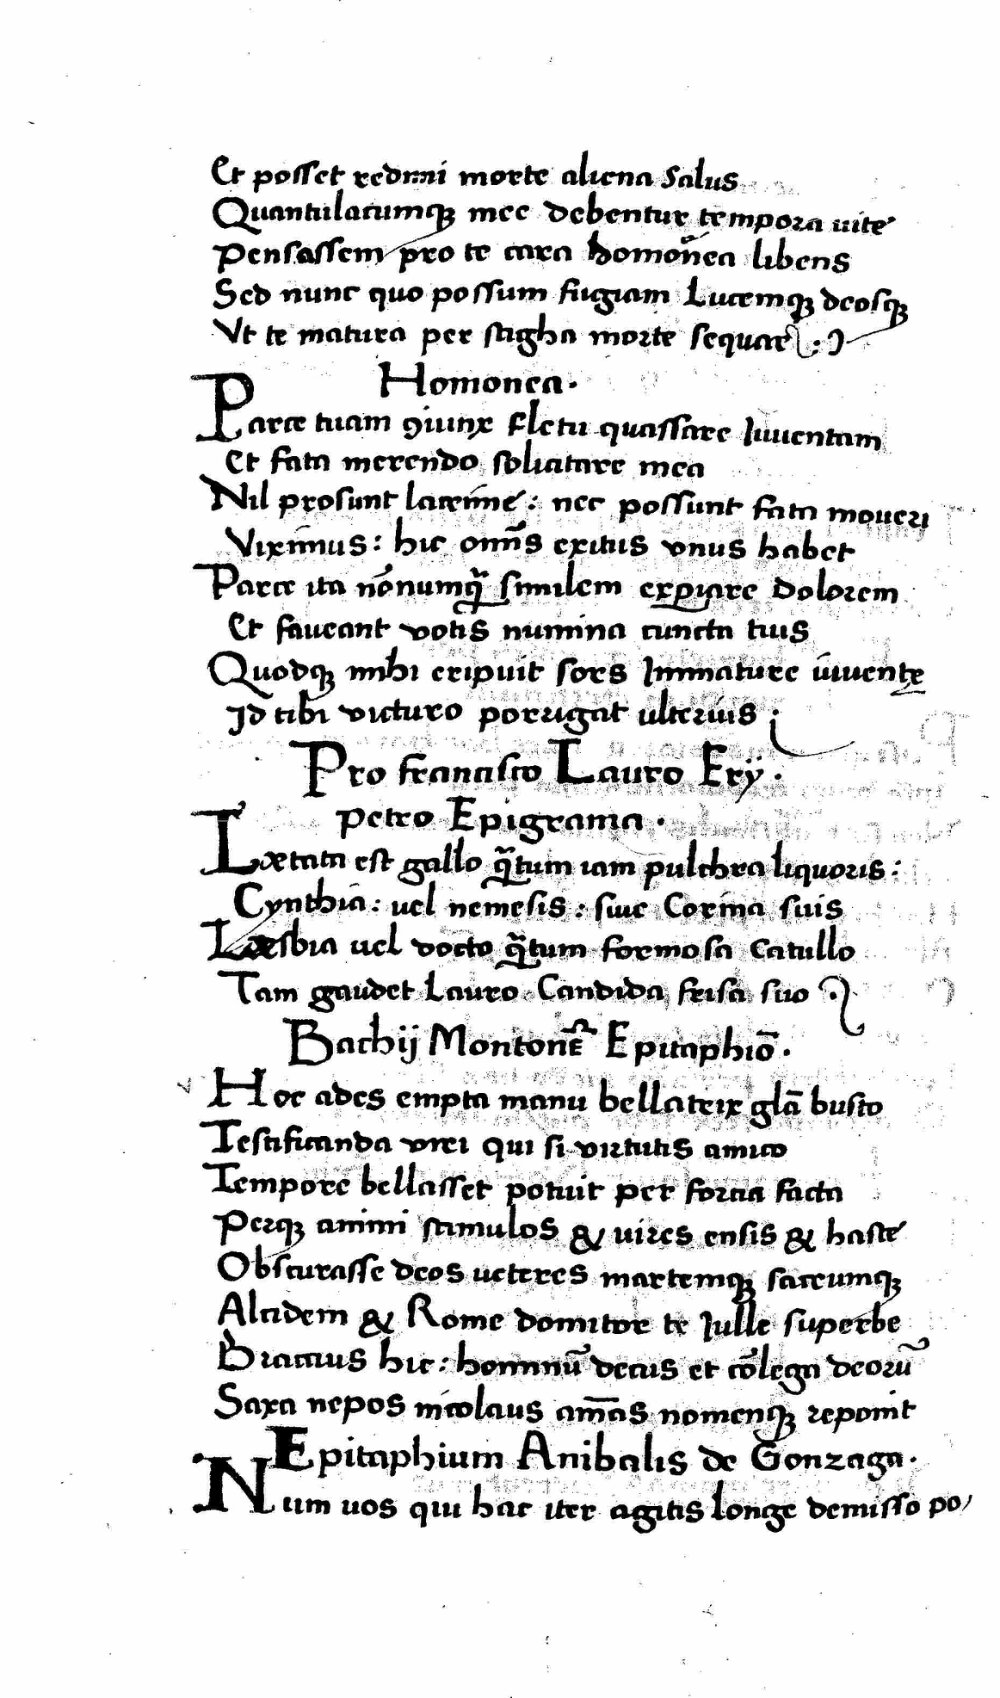 Et posset redimi morte aliena salus
Quantulacumqꝫ mee debentur tempora uite
Pensassem pro te cara homonea libens
Sed nunc quo possum fugiam Lucemqꝫ deosqꝫ
Vt te matura per stigha morte sequar
Homonea.
Parce tuam ꝯiunx fletu quassare Iuuentam
Et fata merendo solicitare mea
Nil prosunt lacrime: nec possunt fata moueri
Viximus: hic omīs exitus vnus habet
Parce ita nōnumꝙ̄ similem expiare dolorem
Et faueant votis numina cuncta tuis
Quodqꝫ mihi eripuit sors Immature iuuentę
Id tibi victuro porrigat ulterius
Pro francisco Lauro Erij.
Petro Epigrama.
Lætata est gallo ꝙ̄tum iam pulchra liquoris:
Cynthia: uel nemesis: siue Corinna suis
Læsbia uel docto ꝙ̄tum formosa Catullo
Tam gaudet Lauro Candida frisa suo
Bachij Montonēn Epitaphiō.
Hoc ades empta manu bellatrix glā busto
Testificanda vrei qui si virtutis amico
Tempore bellasset potuit per forcia facta
Perqꝫ animi stimulos & uires ensis & haste
Obscurasse deos ueteres martemqꝫ sacrumqꝫ
Alcidem & Rome domitor te Iulle superbe
Braccius hic: hominū decus et cōlega deorū
Saxa nepos nicolaus amās nomenqꝫ reponit
Epitaphium Anibalis de Gonzaga.
Num uos qui hac iter agitis longe demisso po/